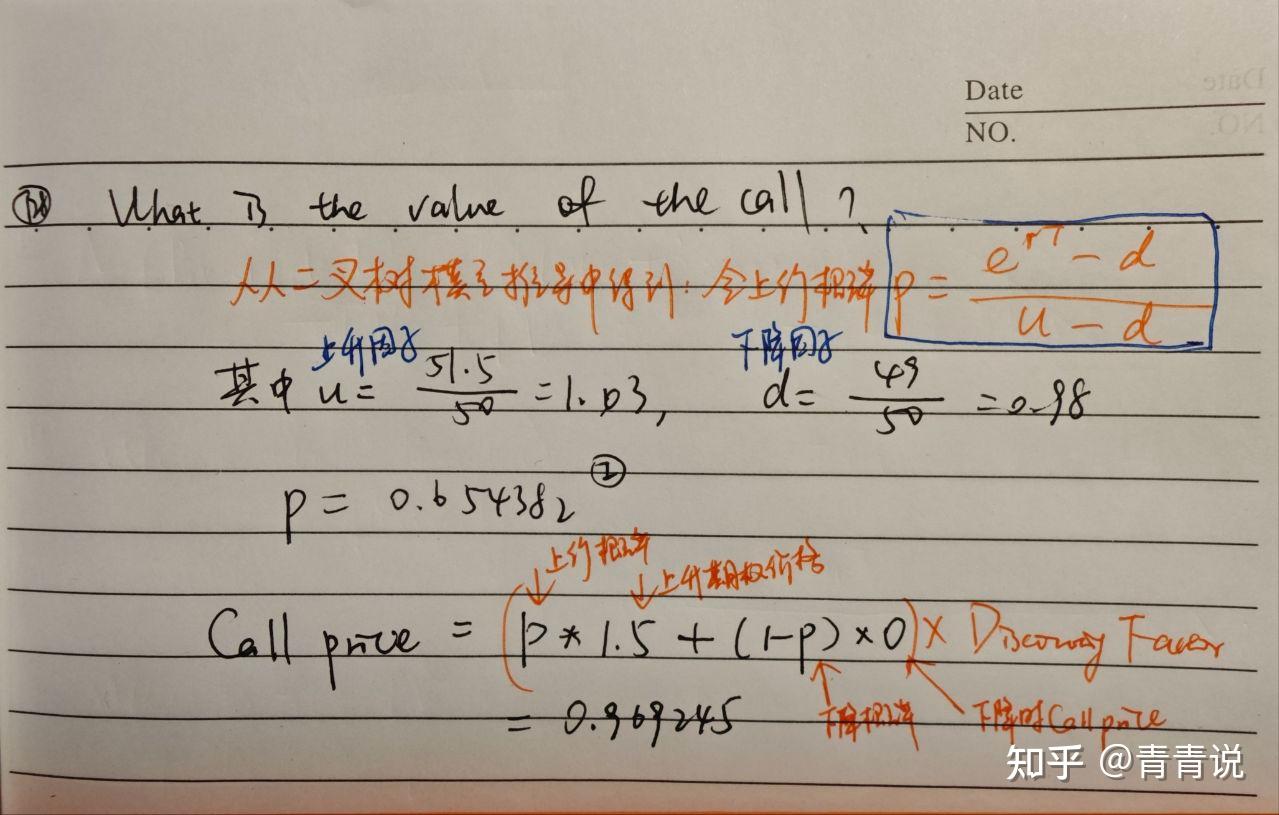 Date
NO.
What is the value of the call?
从二叉树模型推导中得到: 令上价概率 p = (e^{rT} - d) / (u - d)
上升因子 下降因子
其中 u = 51.5/50 = 1.03, d = 49/50 = 0.98
②
p = 0.654382
上价概率
上升期权价格
Call price = (p * 1.5 + (1-p) × 0) × Discounting Factor
= 0.969245 下降概率 下降时 Call price
知乎 @青青说